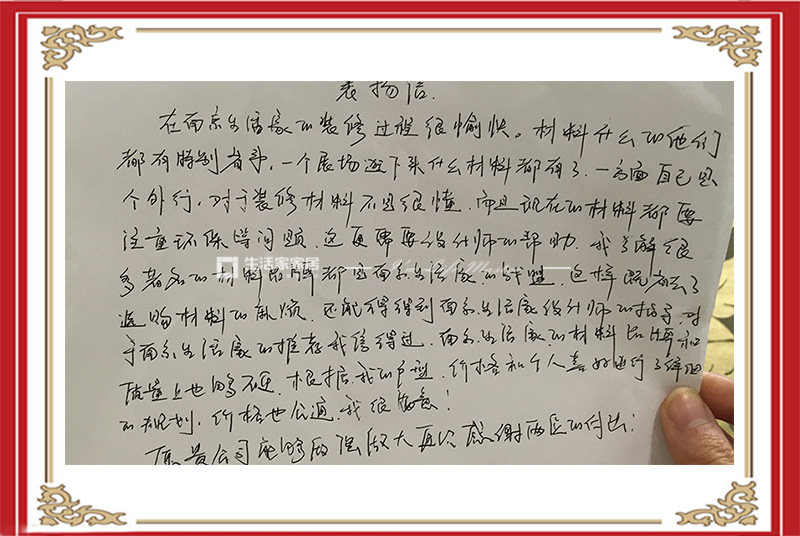 表扬信.
在南京生活家的装修过程很愉快。材料什么的他们
都有特别推荐,一个展场逛下来什么材料都有了.一方面自己是
个外行,对于装修材料不是很懂.而且现在的材料都要
注重环保等问题.这更需要设计师的帮助.我了解很
多著名的材料品牌都是南京生活家的战盟.这样既省去了
选购材料的麻烦.还能够得到南京生活家设计师的指导.对
于南京生活家的推荐我信得过.南京生活家的材料品牌和
质量上也够不错.根据我的户型.价格和个人喜好进行了详细
的规划,价格也公道.我很满意!
愿贵公司能够做强做大再次感谢两位的付出!
生活家家居